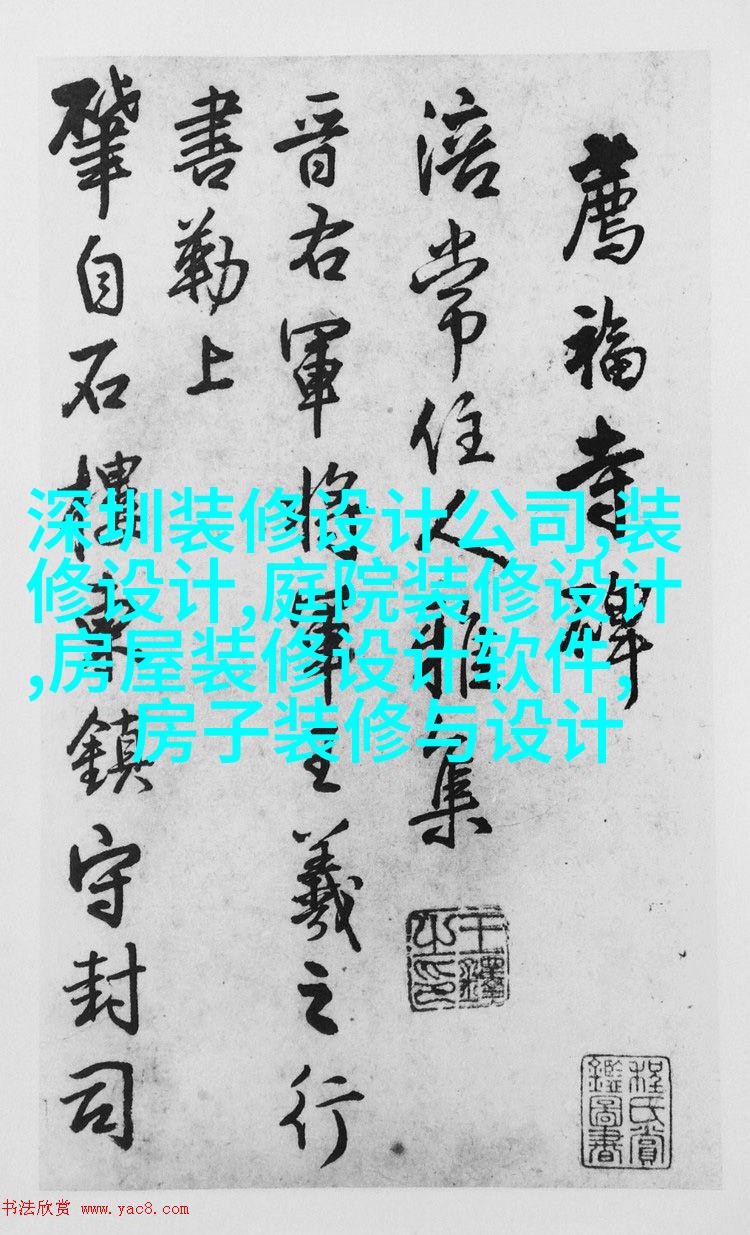 薦福寺碑
涪常住人雅集
晋右軍將軍王羲之行
書勒上
肇自石樓鎮守封司
王鐸之印
程氏賞
鑑圖書
深圳装修设计公司,装
修设计,庭院装修设计
,房屋装修设计软件,
房子装修与设计
书法欣赏 www.yac8.com